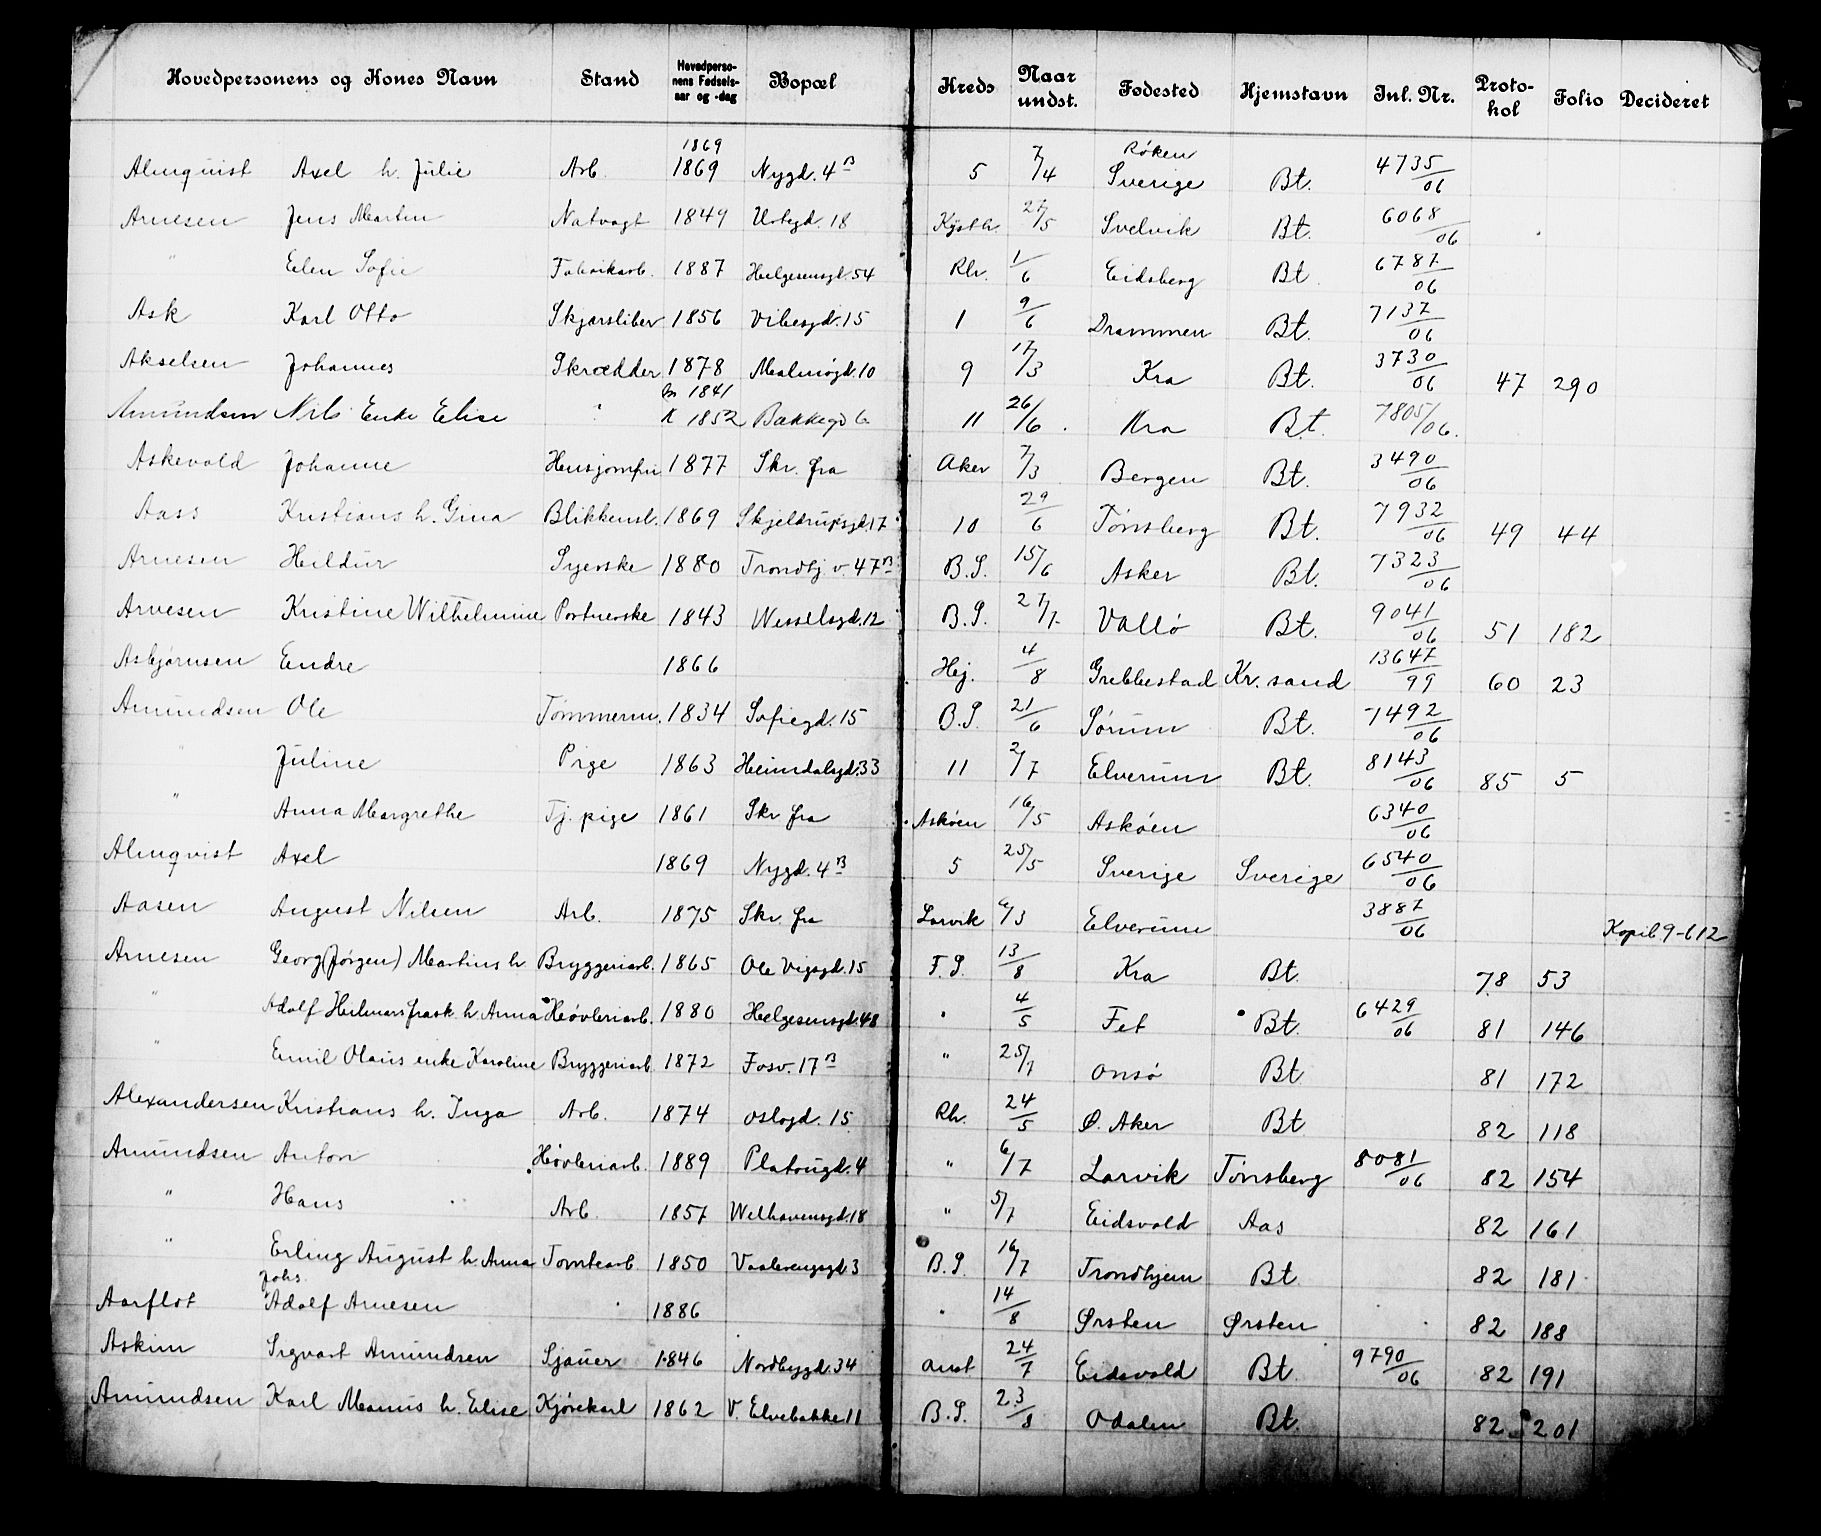 Hovedpersonens og Kones Navn Stand Hovedperso-nens Fødsels-aar og -dag Bopæl Kreds Naar undst. Fødested Hjemstavn Inl. Nr. Proto-kol Folio Decideret
1869 Røken
Almquist Axel h. Julie Arb. 1869 Nygd. 4 B 5 7/4 Sverige Bt. 4735/06
Arnesen Jens Martin Natvagt 1849 Urtegd. 18 Kysth. 27/5 Svelvik Bt. 6068/06
" Elen Sofie Fabrikarb. 1887 Helgesensgt. 54 Rh. 1/6 Eidsberg Bt 6787/06
Ask Karl Otto Skjærsliber 1856 Vibesgd. 15 1 9/6 Drammen Bt. 7137/06
Akselsen Johannes Skrædder 1878 Malmøgd. 10 9 17/3 Kra Bt. 3730/06 47 290
m 1841
Amundsen Nils Enke Elise " K 1852 Bakkegd 6 11 26/6 Kra Bt. 7805/06.
Askevold Johanne Husjomfru 1877 Skr. fra Aker 7/3 Bergen Bt. 3490/06
Aass Kristians h. Gina Blikkensl. 1869 Skjeldrupsgd. 17 10 29/6 Tønsberg Bt. 7932/06 49 44
Arnesen Hildur Syerske 1880 Trondhj v. 47 B B.S. 15/6 Asker Bt. 7323/06
Arvesen Kristine Wilhelmine Portnerske 1843 Wesselsgd. 12 B.S. 27/7 Vallø Bt. 9041/06 51 182
Asbjørnsen Endre 1866 Hej. 4/8 Grebbestad Kr. sand 13647/99 60 23
Amundsen Ole Tømmerm. 1834 Sofiegd. 15 B.S. 21/6 Sørum Bt. 7492/06
" Juline Pige 1863 Heimdalsgd. 33 11 2/7 Elverum Bt. 8143/06 85 5
" Anna Margrethe Tj. pige 1861 Skr fra Askøen 16/5 Askøen 6340/06
Almqvist Axel 1869 Nygd. 4 B 5 25/5 Sverige Sverige 6540/06
Aasen August Nilsen Arb. 1875 Skr. fra Larvik 6/3 Elverum 3887/06 Kopib 9-612
Arnesen Georg (Jørgen) Martins h Bryggeriarb. 1865 Ole Vigsgd. 15 F.S. 13/8 Kra Bt. 78 53
" Adolf Hilmars frask. h Anna Høvleriarb. 1880 Helgesensgd. 48 " 4/5 Fet Bt. 6429/06 81 146
" Emil Olaus enke Karoline Bryggeriarb. 1872 Fosv. 17 B " 25/7 Onsø Bt 81 172
Alexandersen Kristians h. Inga Arb. 1874 Oslogd. 15 Rh. 24/5 Ø. Aker Bt 82 118
Amundsen Anton Høvleriarb. 1889 Platougd. 4 " 6/7 Larvik Tønsberg 8081/06 82 154
" Hans Arb. 1857 Welhavensgd. 18 " 5/7 Eidsvold Aas 82 161
" Erling August h. Anna Tomtearb 1850 Vaalerengsgd. 3 B.S. 16/7 Trondhjem Bt 82 181
Johs.
Aarflot Adolf Arnesen 1886 " 14/8 Ørsten Ørsten 82 188
Askim Sigvart Amundsen Sjauer 1846 Nordbygd. 34 anst 24/7 Eidsvold Bt. 9790/06 82 191
Amundsen Karl Manus h. Elise Kjørekarl 1862 V. Elvebakke 11 B.S. 23/8 Odalen Bt. 82 201